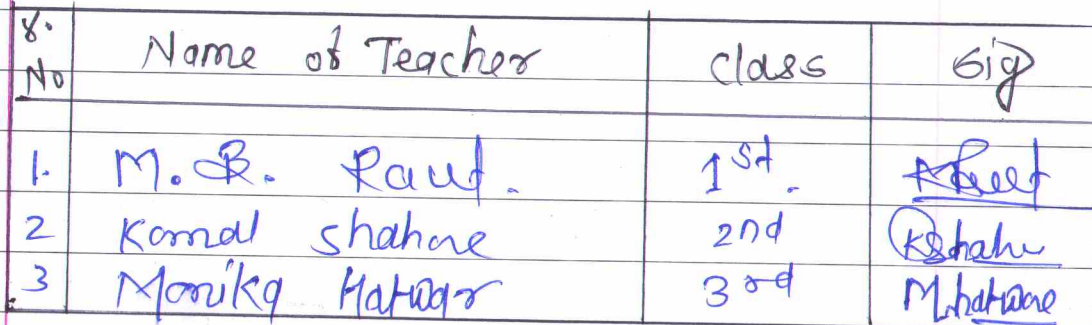 S. No Name of Teacher Class Sig
1. M. B. Raut. 1st.
2 Komal Shahare 2nd KShahre
3 Monika Hatwar 3rd Mhatware